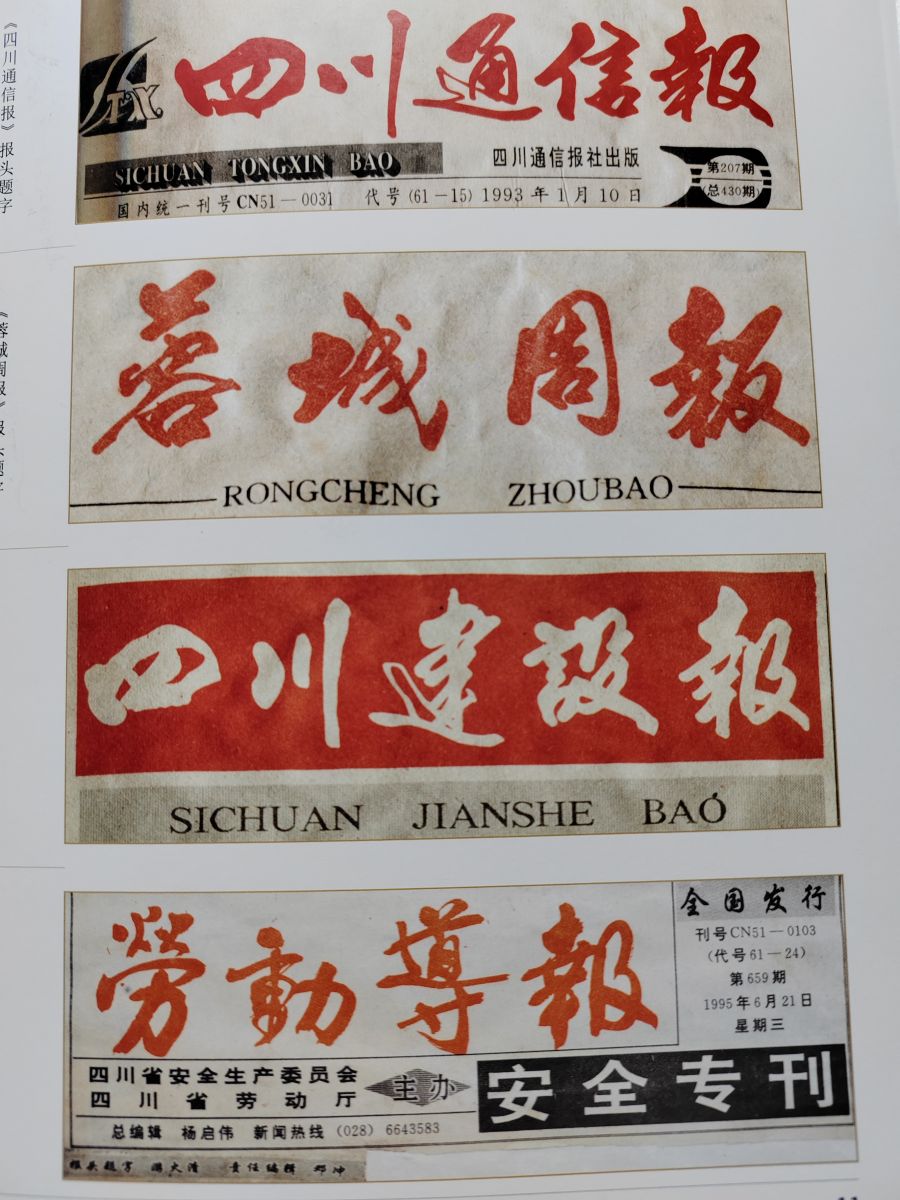 《四川通信报》报头题字
四川通信報
TX
SICHUAN TONGXIN BAO
四川通信报社出版
第207期
(总430期)
国内统一刊号CN51—0031 代号(61—15) 1993年1月10日
《蓉城周报》报头题字
蓉城周報
RONGCHENG ZHOUBAO
四川建設報
SICHUAN JIANSHE BAO
勞動導報
全国发行
刊号CN51—0103
(代号61—24)
第659期
1995年6月21日
星期三
四川省安全生产委员会
四川省劳动厅
主办
安全专刊
总编辑 杨启伟 新闻热线 (028) 6643583
报头题字 责任编辑 邓冲